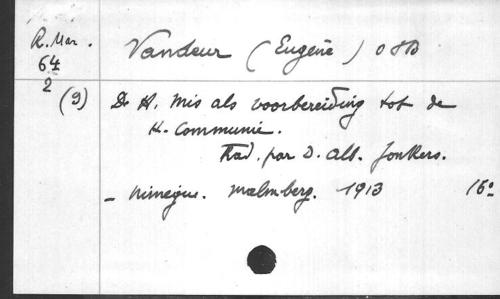 R. Mar.
64
2
Vandeur (Eugène) OSB
(9) De H. Mis als voorbereiding tot de
H. Communie.
Trad. par D. Alb. Jonkers.
– Nimègue. Malmberg. 1913 16°